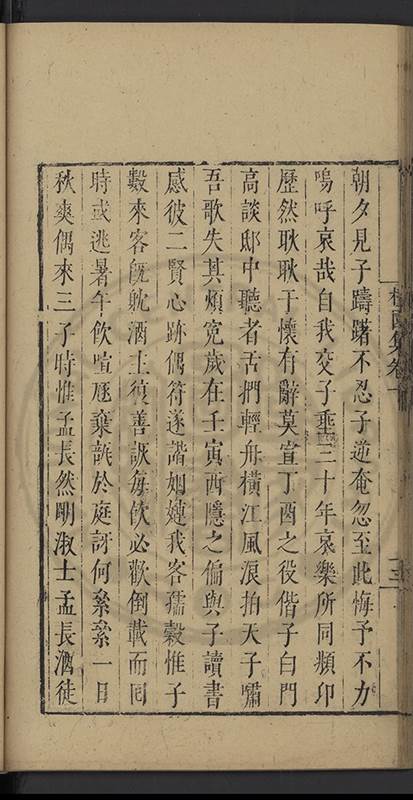 朝夕見子躊躇不忍子逝奄忽至此悔予不力
嗚呼哀哉自我交子垂三十年哀樂所同頻卬
歷然耿耿于懷有辭莫宣丁酉之役偕子白門
高談邸中聽者舌捫輕舟橫江風浪拍天子嘯
吾歌失其煩冤歲在壬寅酉隱之偏與子讀書
感彼二賢心跡偶符遂諧姻婕我客孺穀惟子
數來客旣躭酒主復善詼每飲必歡倒載而囘
時或逃暑午飲喧豗棄觥於庭訝何纍纍一日
秋爽偶來三子時惟孟長然明淑士孟長酒徒